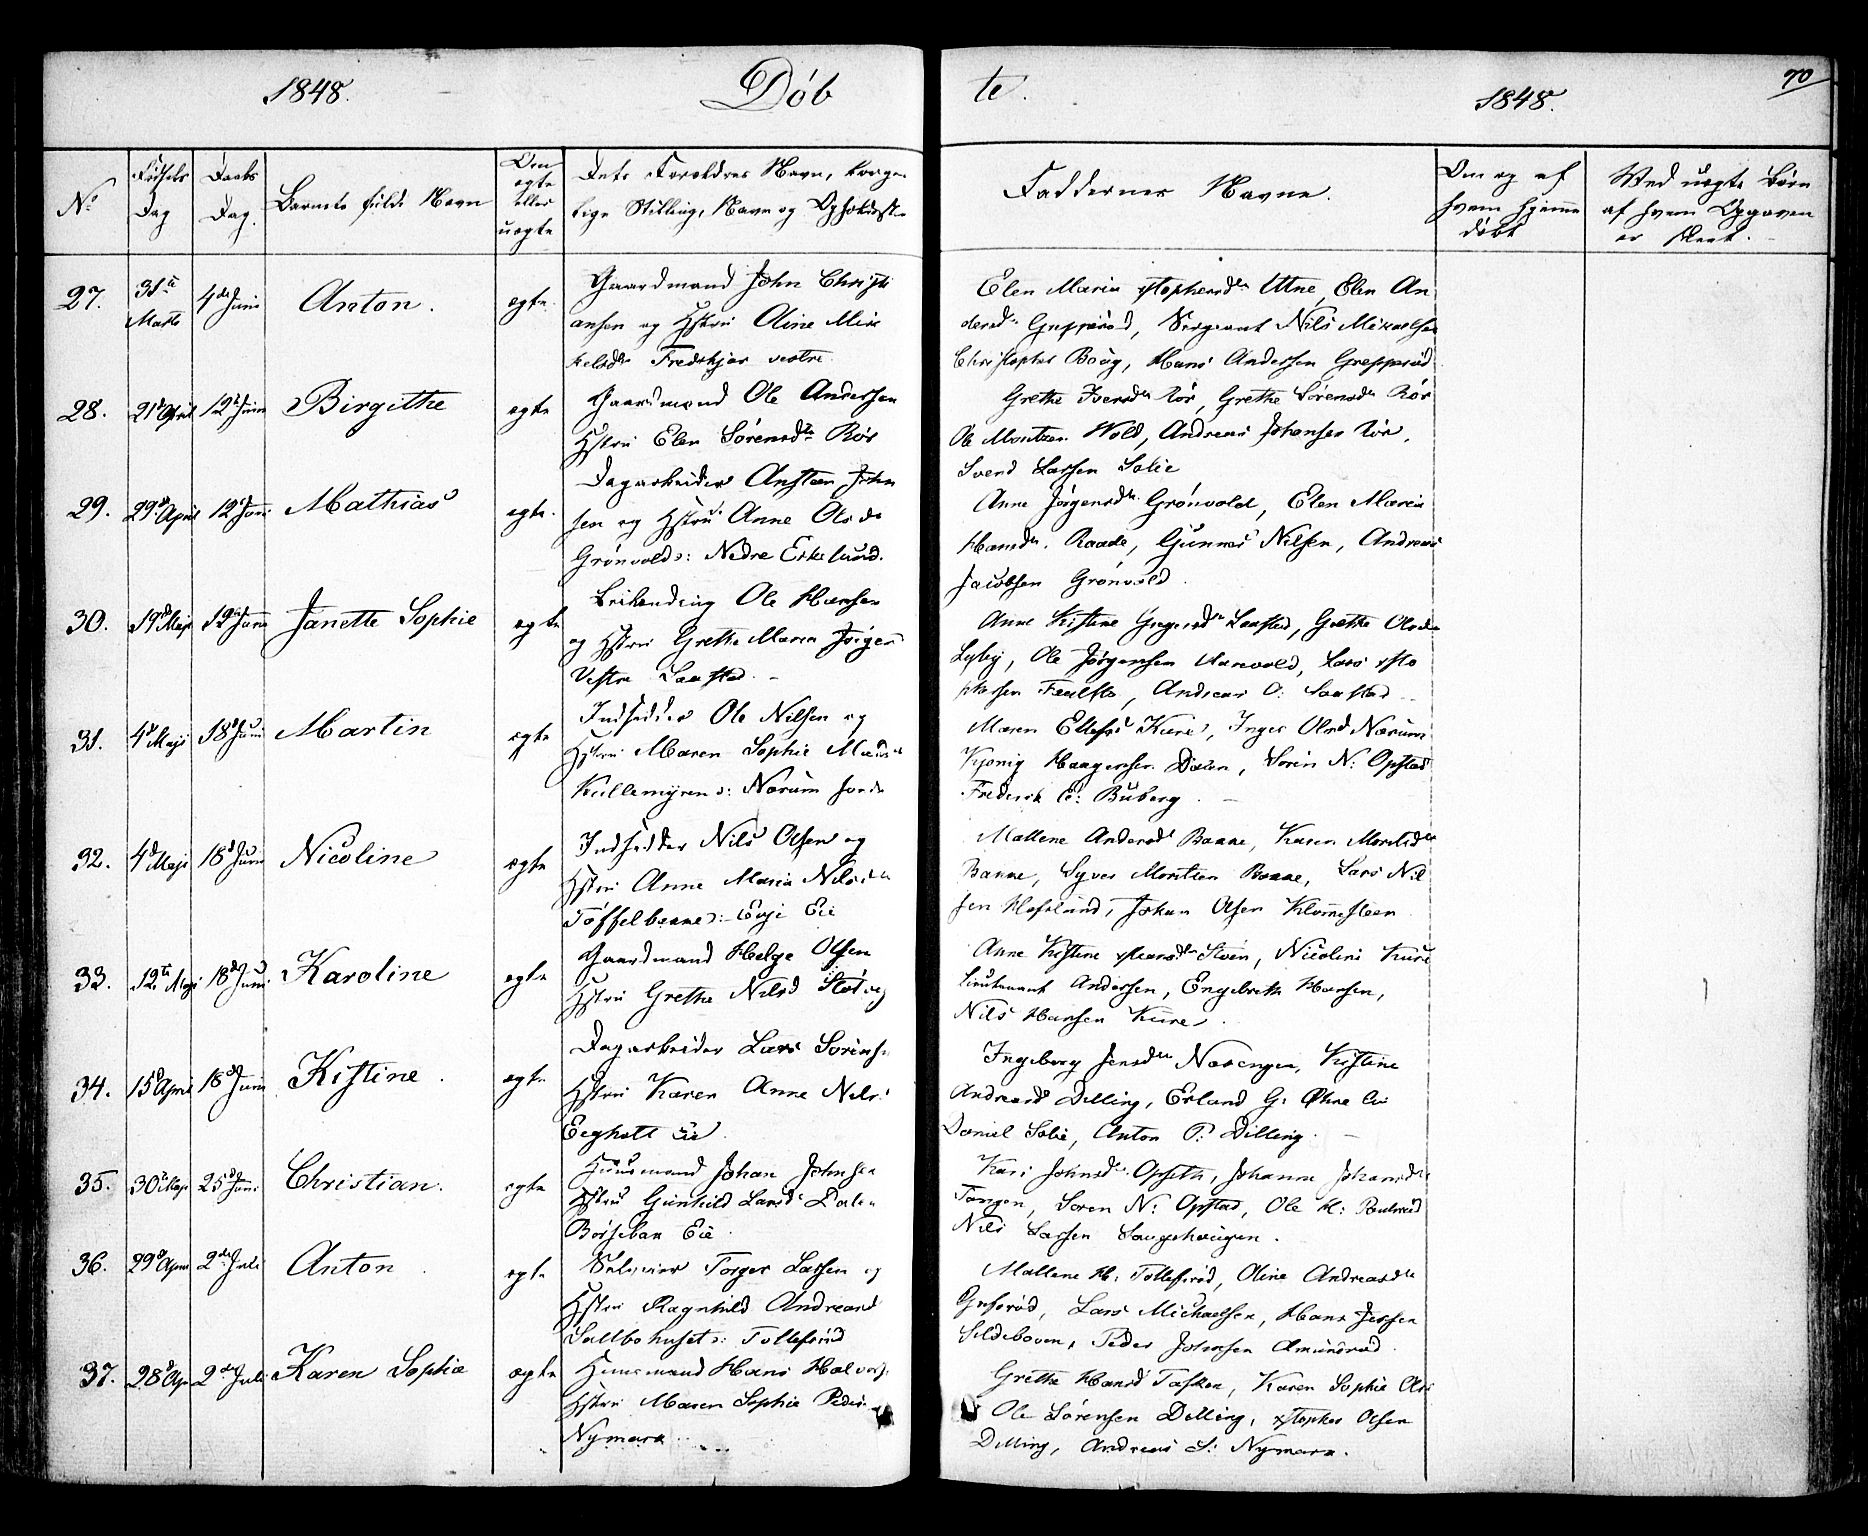 1848. Döb te. 1848. 70
No
Fødsels Dag
Daabs Dag.
Barnets fulde Navn
Om ægte eller uægte
Dets Forældres Navn, borger-
lige Stilling, Navn og Opholdsst.
Faddernes Navne.
Om og af hvem hjemme døbt
Wed uægte Børn af hvem Opgaven er skeet.
27. 31te Marts 4de Juni Anton. ægte.
Gaardmand John Christi
ansen og Hstru Oline Mik
kelsdr Fredskjær vestre
Elen Maria xstophersdr Utne, Elen An
dersdr Gripperød, Sergeant Nils Mikaelsen
Christopher Boug, Hans Andersen Gripperød
28. 21d April 12te Juni Birgithe ægte
Gaardmand Ole Andersen
Hstru Elen Sørensdr Rör
Grethe Iversdr Rör, Grethe Sørensdr Rör
Ole Moritzen Wold, Andreas Johansen Rör,
Svend Larsen Solie
29. 29d April 12te Juni Mathias ægte.
Dagarbeider Ansten John
sen og Hstru Anne Olsdr
Grönvold: Nedre Eskelund.
Anne Jörgensdr Grönvold, Elen Maria
Hansdr. Raade, Gunner Nilsen, Andreas
Jacobsen Grönvold.
30. 19d Maji 12te Juni Janette Sophie ægte
Ole Hansen
og Hstru Grethe Maria Jörgen
Vestre Laustad. -
Anne Kistine Gregersdr Laustad, Grethe Olsdr
Lyby, Ole Jörgensen Aarvold, Lars xsto
phersen, Andreas O: Laustad
31. 4d Maji 18d Juni Martin ægte
Indsidder Ole Nilsen og
Hstru Maren Sophie Madsdr
Kullemyren: Norum søndre
Maren Ellefsd Kure, Inger Olsd Norum
Kjönig Haagensen Dalen, Sören N: Opstad
Frederik C: Buberg. -
32. 4d Maji 18d Juni Nicoline ægte
Indsidder Nils Olsen og
Hstru Anne Maria Nilsdr
Töffelbanne: Evje Eie
Mallene Andersd Banne, Karen Moritsdr
Banne, Syver Moritsen Banne, Lars Nil
sen Hofslund, Johan Olsen Klommesteen
33. 12te Maji 18d Juni Karoline ægte
Gaardmand Helge Olsen
Hstru Grethe Nilsd
Anne Kistine, Nicolini Kure
Lieutenant Andersen, Engebreth Hansen,
Nils Hansen Kure.
34. 15d April 18d Juni Kistine. ægte
Dagarbeider Lars Sörens.
Hstru Karen Anne Nils.
Eegholt Eie.
Ingeborg Jensdr Nosengen, Kistine
Andreasd Dilling, Erland G: Øhne Eie
Daniel Solie, Anton P: Dilling. -
35. 30te Maji 25d Juni Christian. ægte
Huusmand Johan Johnsen
Hstru Gunhild Larsd Dalen
Börsebak Eie.
Kari Johnsdr Opseth, Johanne Johansdr
Tangen, Sören N: Opstad, Ole H: Poulsrud
Nils Larsen Saugshaugen.
36. 29d April 2de Juli Anton. ægte
Selveier Torger Larsen og
Hstru Ragnhild Andreasd
Saltbohuset: Tollefsröd
Mallene H: Tollefsröd, Oline Andreasdr
Gipsröd, Lars Michaelsen, Hans Jensen
Sildeboven, Peder Johnsen Amundröd.
37. 28d Apr 2de Juli Karen Sophie ægte
Huusmand Hans Halvors.
Hstru Maren Sophie Peders
Nymark
Grethe Hansd Tasken, Karen Sophie
Ole Sörensen Dilling, xstopher Olsen
Dilling, Andreas S: Nymark.